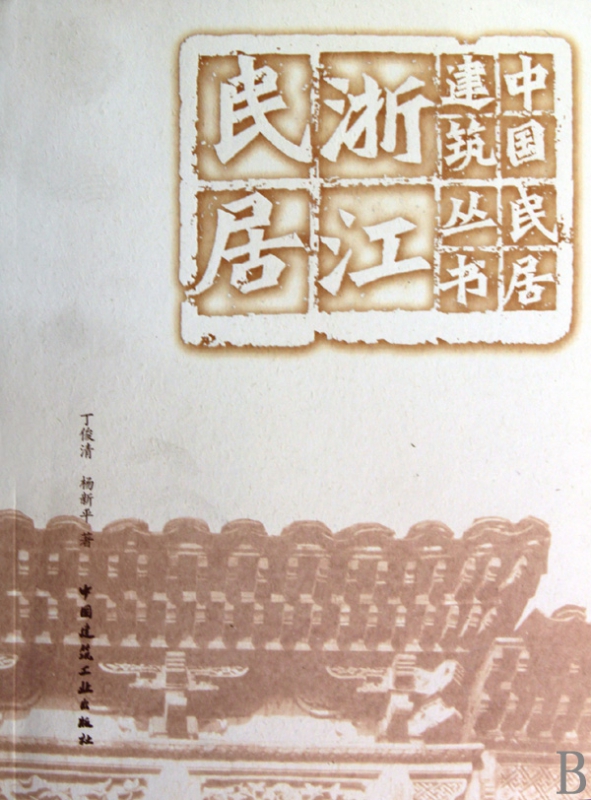 中国民居
建筑丛书
浙江
民居
丁俊清 杨新平 著
中国建筑工业出版社
B